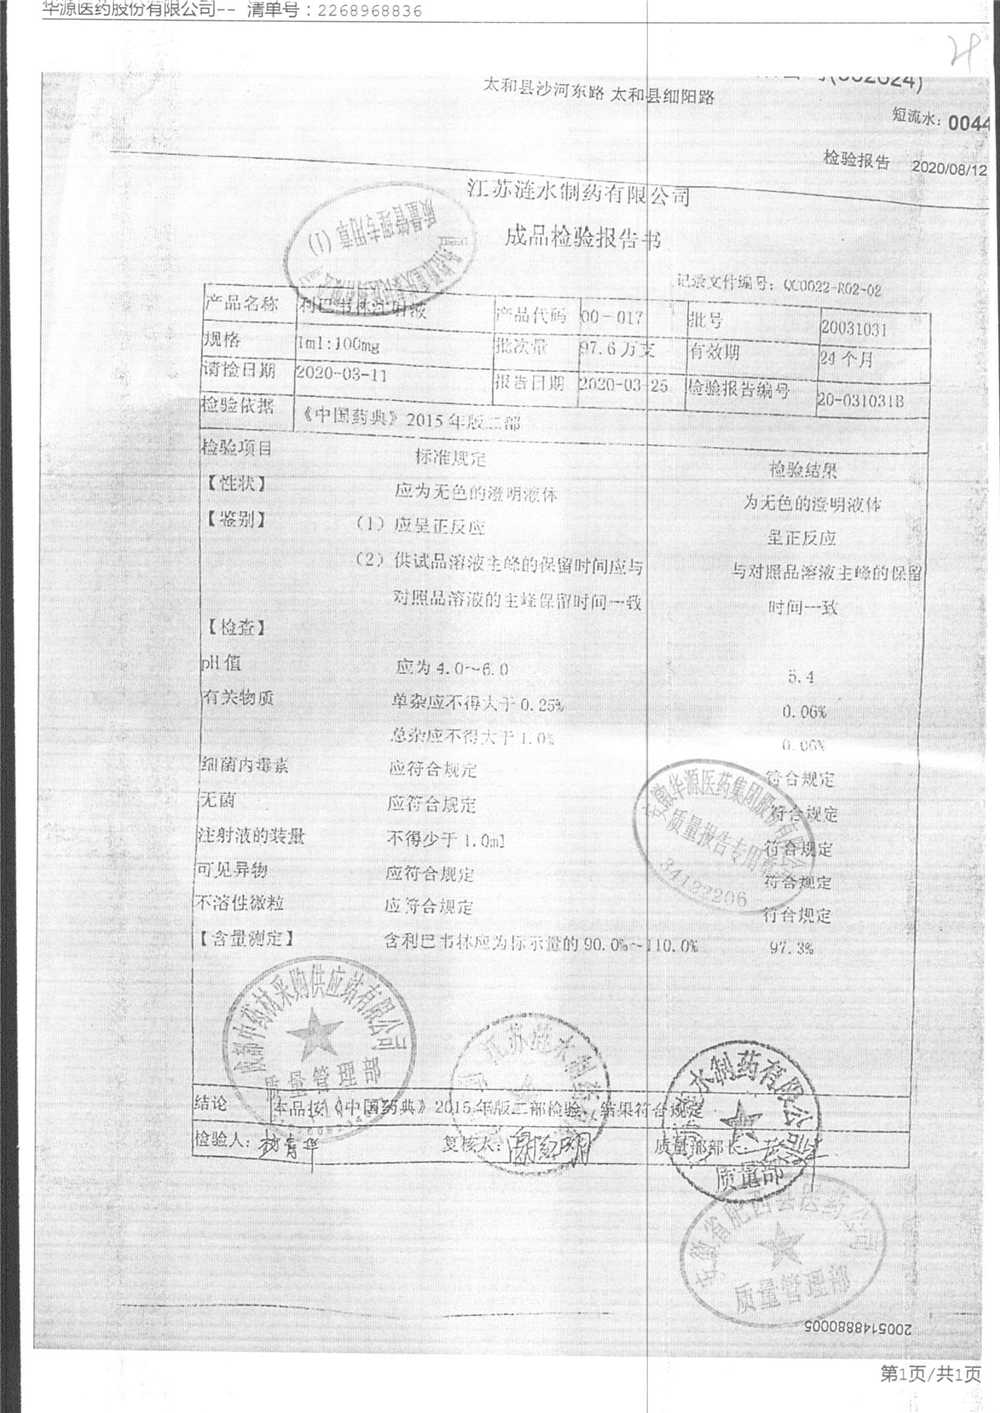 华源医药股份有限公司-- 清单号：2268968836
太和县沙河东路 太和县细阳路
短流水：0044
检验报告 2020/08/12
江苏涟水制药有限公司
成品检验报告书
记录文件编号：QC0022-R02-02
产品名称 利巴韦林注射液 产品代码 00-017 批号 20031031
规格 1ml:100mg 批次量 97.6万支 有效期 24个月
请检日期 2020-03-11 报告日期 2020-03-25 检验报告编号 20-031031B
检验依据 《中国药典》2015年版二部
检验项目 标准规定 检验结果
【性状】 应为无色的澄明液体 为无色的澄明液体
【鉴别】 （1）应呈正反应 呈正反应
（2）供试品溶液主峰的保留时间应与 与对照品溶液主峰的保留
对照品溶液的主峰保留时间一致 时间一致
【检查】
pH值 应为4.0~6.0 5.4
有关物质 单杂应不得大于0.25% 0.06%
总杂应不得大于1.0% 0.06%
细菌内毒素 应符合规定 符合规定
无菌 应符合规定 符合规定
注射液的装量 不得少于1.0ml 符合规定
可见异物 应符合规定 符合规定
不溶性微粒 应符合规定 符合规定
【含量测定】 含利巴韦林应为标示量的90.0%~110.0% 97.3%
安徽华源医药集团股份有限公司
质量报告专用章
34122206
成都中药材采购供应站有限公司
质量管理部
江苏涟水制药
水制药有限公司
质量部
结论 本品按《中国药典》2015年版二部检验，结果符合规定
检验人： 复核人： 质量部部长：
安徽省肥西县医药公司
质量管理部
2005148880005
第1页/共1页